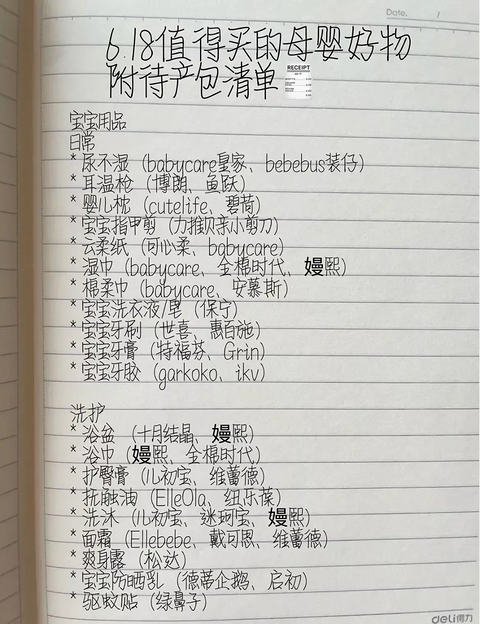 Date. /
6.18值得买的母婴好物
附待产包清单
RECEIPT
宝宝用品
日常
* 尿不湿（babycare皇家、bebebus装仔）
* 耳温枪（博朗、鱼跃）
* 婴儿枕（cutelife、碧荷）
* 宝宝指甲剪（力推贝亲小剪刀）
* 云柔纸（可心柔、babycare）
* 湿巾（babycare、全棉时代、嫚熙）
* 棉柔巾（babycare、安慕斯）
* 宝宝洗衣液/皂（保宁）
* 宝宝牙刷（世喜、惠百施）
* 宝宝牙膏（特福芬、Grin）
* 宝宝牙胶（garkoko、ikv）
洗护
* 浴盆（十月结晶、嫚熙）
* 浴巾（嫚熙、全棉时代）
* 护臀膏（儿初宝、维蕾德）
* 抚触油（ElleOla、纽乐葆）
* 洗沐（儿初宝、迷珂宝、嫚熙）
* 面霜（Ellebebe、戴可思、维蕾德）
* 爽身露（松达）
* 宝宝防晒乳（德蒂企鹅、启初）
* 驱蚊贴（绿鼻子）
deli得力